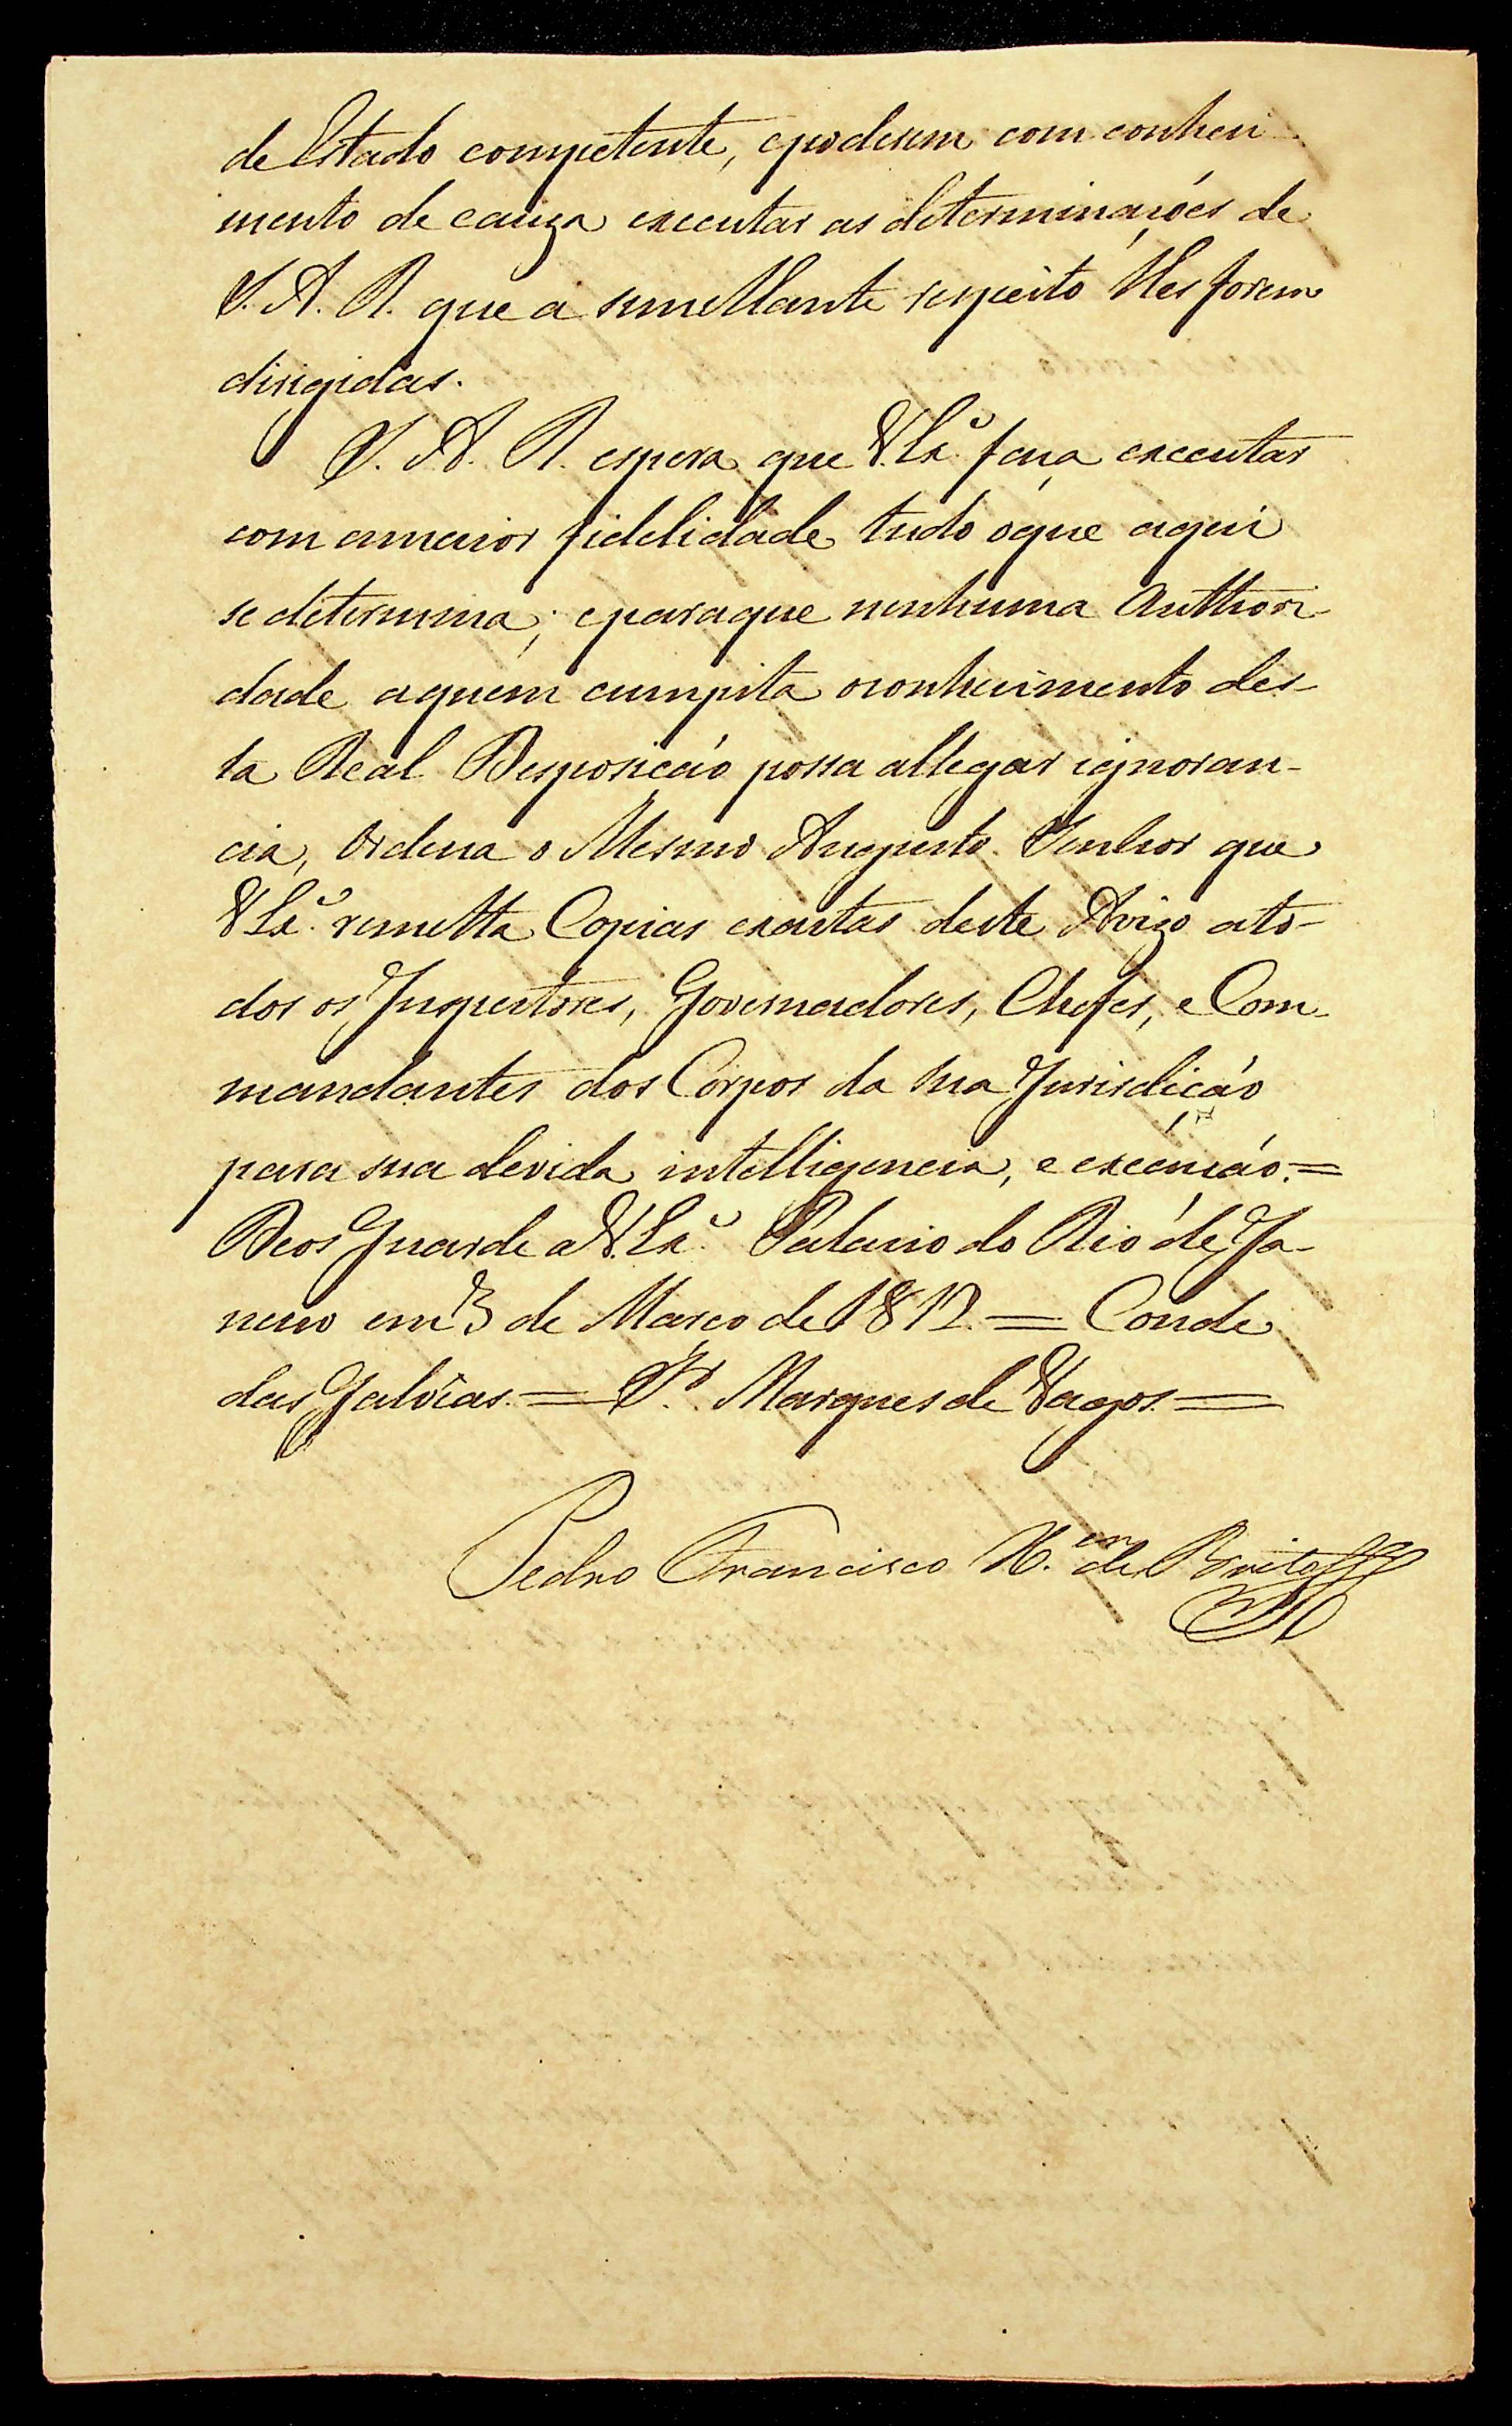 de Estado competente, epoderem com conheci
mento de cauza executar as determinaçóes de
S. A. R. que a similhante respeito lhes forem
dirigidas.
S. A. R. espera que V. Ex.ª faça executar
com amaior fidelidade tudo oque aqui
se determina; eparaque nenhuma Authori-
dade aquem cumpita oconhecimento des-
ta Real Desposiçáo possa allegar ignoran-
cia, Ordena o Mesmo Augusto Senhor que
V Ex.ª remetta Copias exactas deste Avizo ato-
dos os Inspectores, Governadores, Chefes, e Com-
mandantes dos Corpos da sua Jurisdiçáo
para sua devida intelligencia, e execuçáo. =
Deos Guarde a V. Ex.ª Palacio do Rio de Ja-
neiro em 3 de Março de 1812. = Conde
das Galvêas. = S.r Marques de Vagos. =
Pedro Francisco X.er de Brito